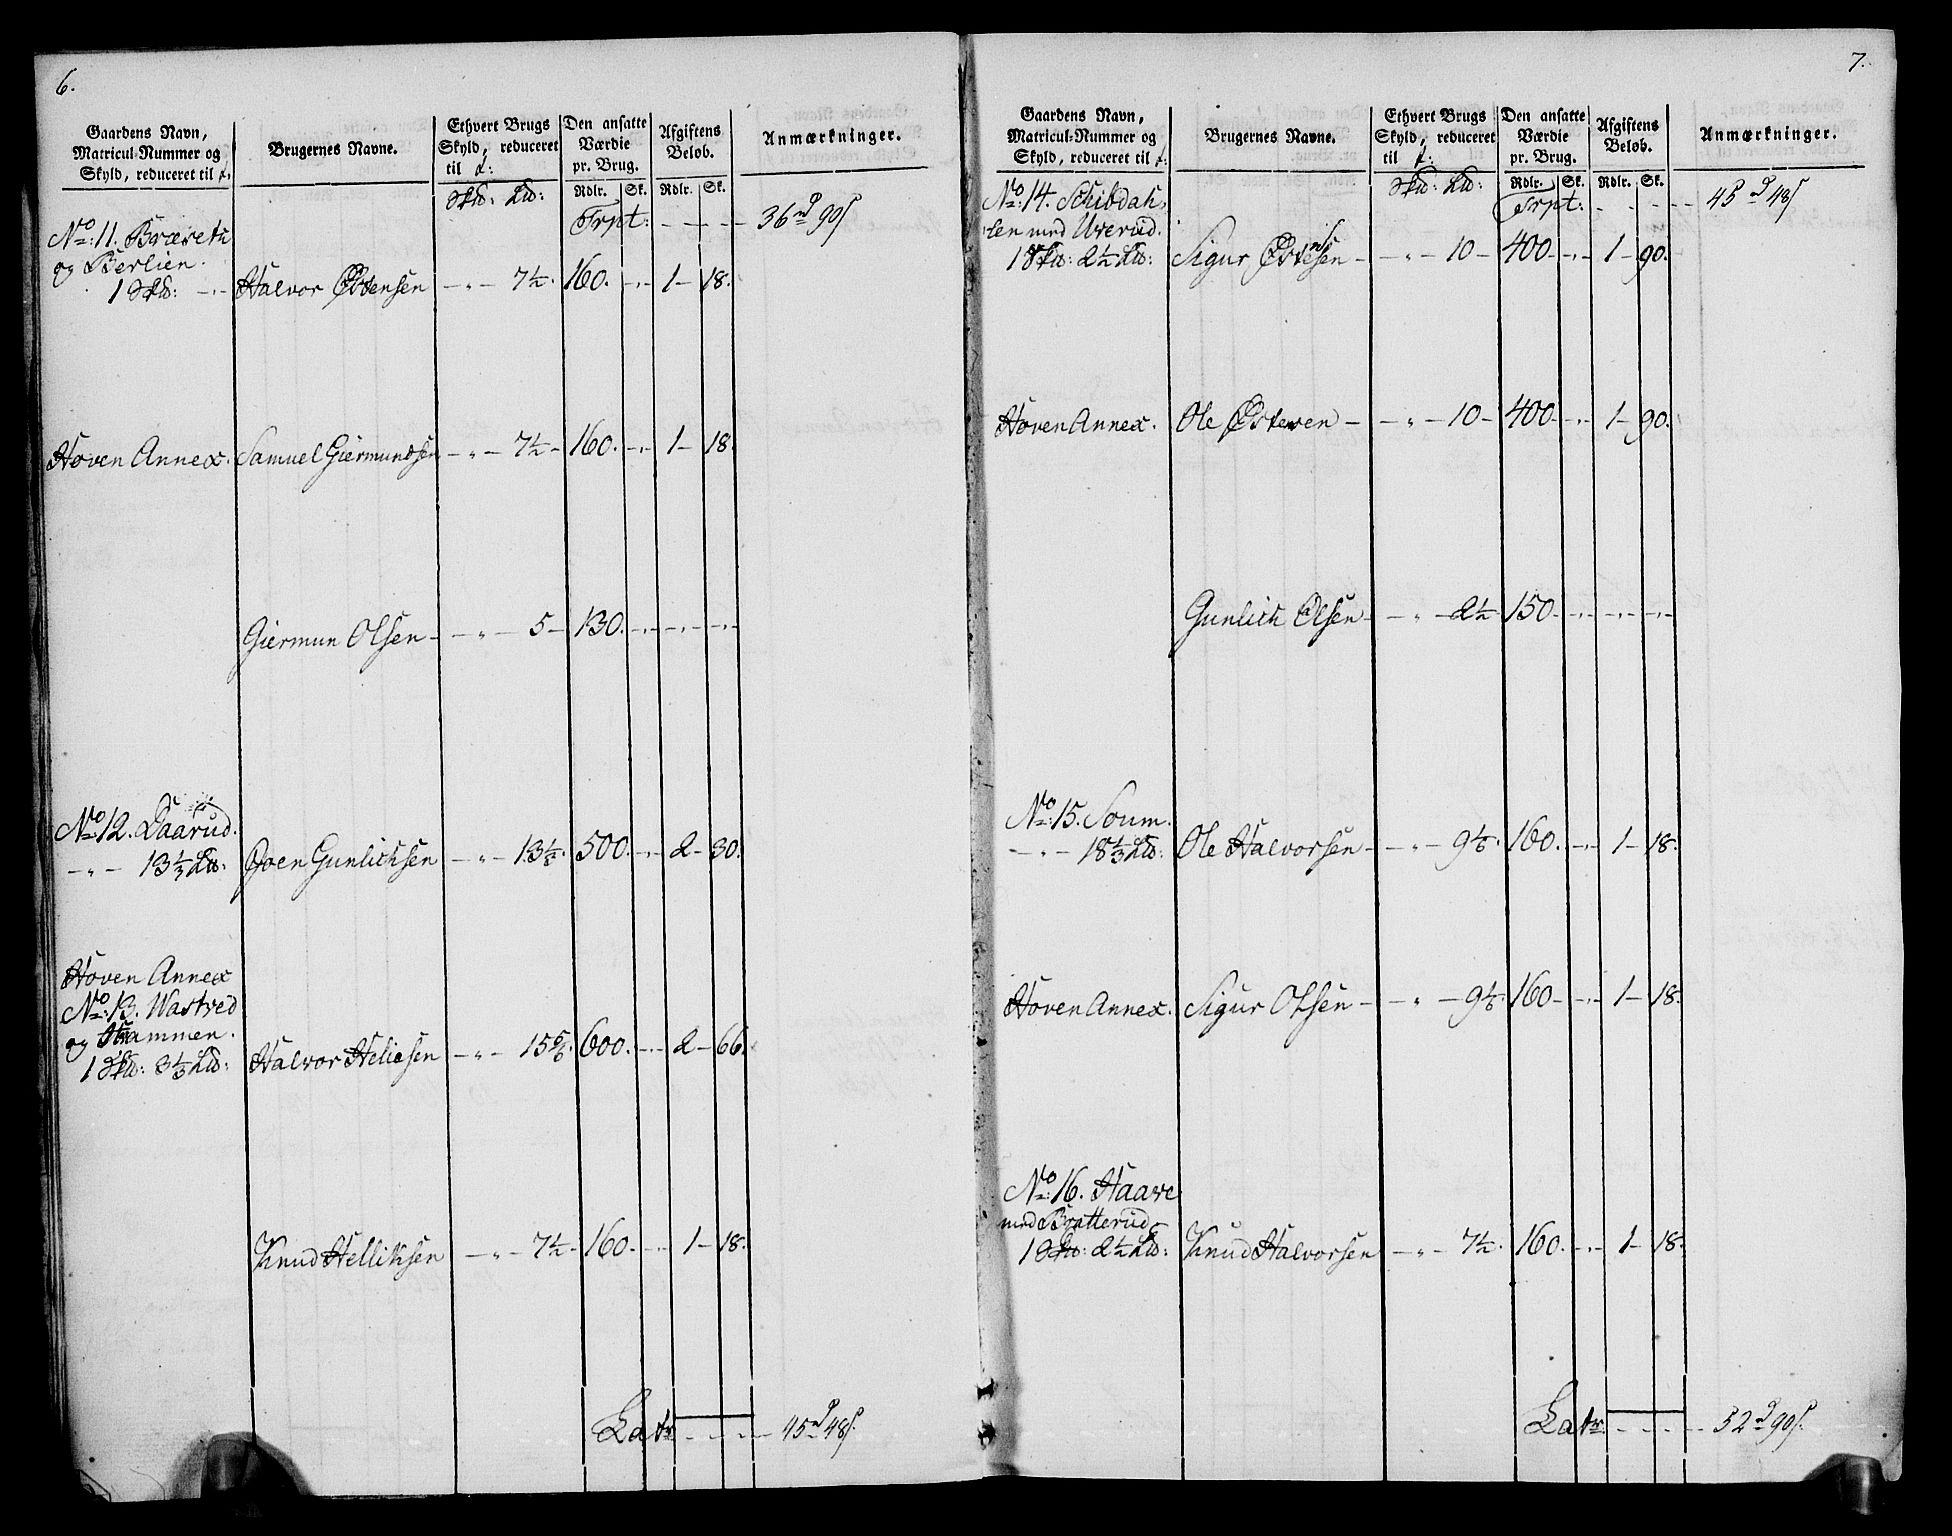 6.
Gaardens Navn, Matricul-Nummer og Skyld, reduceret til
Brugernes Navne.
Ethvert Brugs Skyld, reduceret til
Den ansatte Værdie pr. Brug.
Afgiftens Beløb.
Anmærkninger.
Rdlr. Sk. Rdlr. Sk.
Trpt: - - - - 36 rd 90 s
No: 11.
og Berlien.
1 Skd: - „ - Halvor Østensen - „ - 7½. 160. - „ - 1 - 18.
Hoven Annex. Samuel Giermundsen - „ - 7½ - 160. - „ - 1 - 18.
Giermun Olsen - - „ - 5 - 130. - „ - „ - „ -
No: 12. Daarud.
- „ - 13⅓ Ld: Joen Gunlichsen - „ - 13⅓. 500. - „ - 2 - 30.
Hoven Annex
No: 13. Wastved
og Hammen.
1 Skd: 3⅓ Ld: Halvor Heliesen - „ - 15⅚. 600. - „ - 2 - 66.
Knud Helliksen - „ - 7½ - 160. - „ - 1 - 18.
Latr - - - - 45 rd 48 s.
7.
Gaardens Navn, Matricul-Nummer og Skyld, reduceret til
Brugernes Navne.
Ethvert Brugs Skyld, reduceret til
Den ansatte Værdie pr. Brug.
Afgiftens Beløb.
Anmærkninger.
Rdlr. Sk. Rdlr. Sk.
Trpt: - - - - 45 rd 48 s
No: 14. Schibdah-
len med Uverud.
1 Skd: 2½ Ld: Sigur Østensen - - „ - 10 - 400 - „ - 1 - 90.
Hoven Annex. Ole Østensen - - „ - 10 - 400 - „ - 1 - 90.
Gunlich Olsen - - „ - 2½ 150 - „ - „ - „ -
No: 15. Soum.
- „ - 18⅓ Ld: Ole Halvorsen - - „ - 9⅙. 160. - „ - 1 - 18.
Hoven Annex. Sigur Olsen - - „ - 9⅙. 160 - „ - 1 - 18.
No: 16. Haave
med Bratterud
1 Skd: 2½ Ld: Knud Halvorsen - „ - 7½. 160. - „ - 1 - 18.
Latr: - - - - 52 rd 90 s.